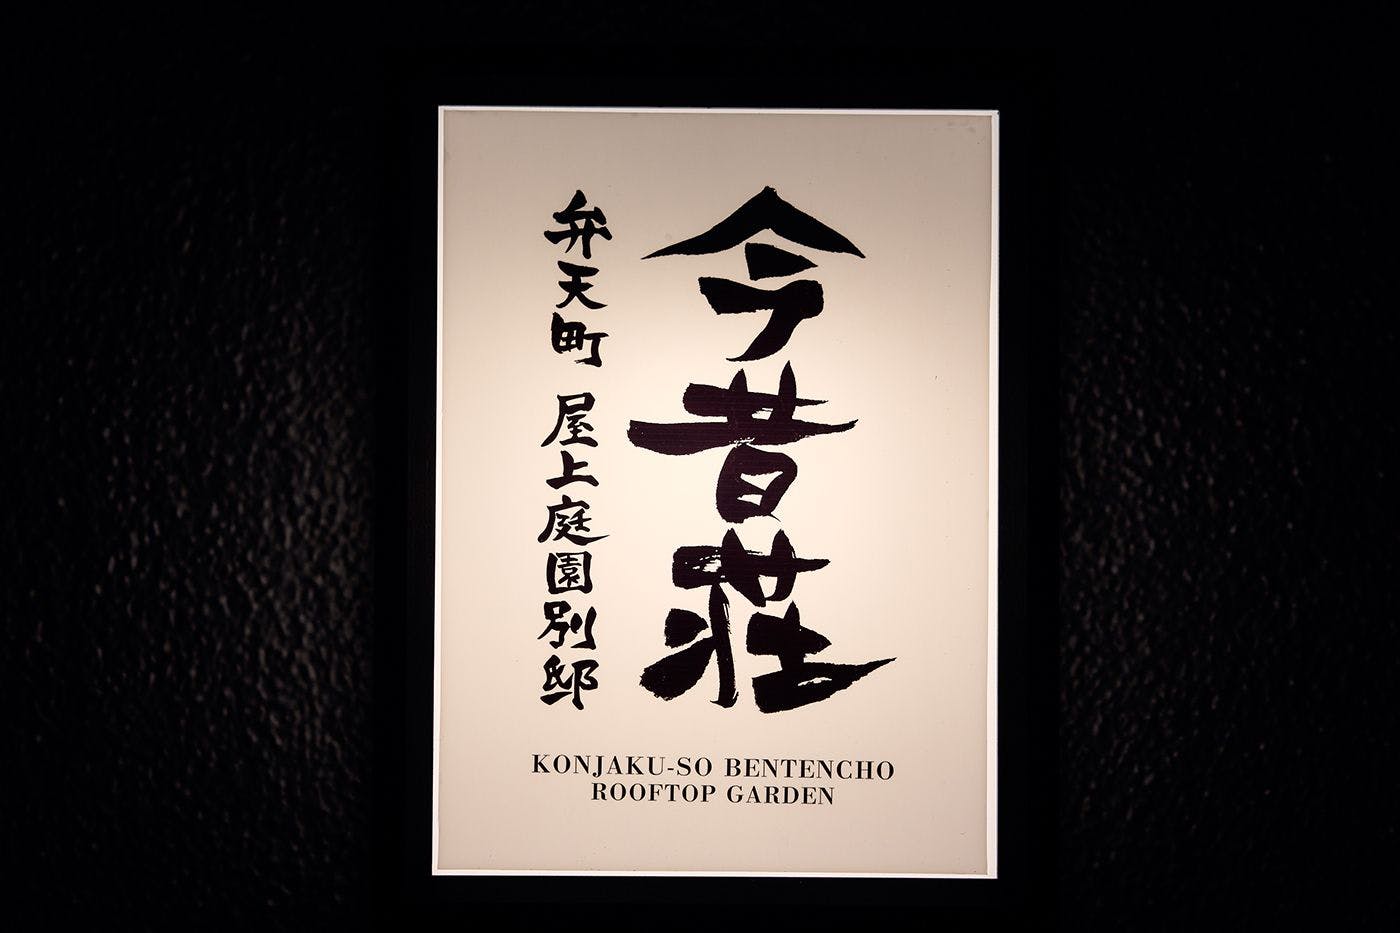 今昔荘
弁天町 屋上庭園別邸
KONJAKU-SO BENTENCHO
ROOFTOP GARDEN